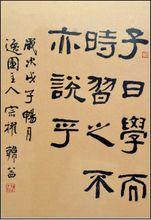 子曰學而
時習之不
亦說乎
歲次戊子暢月
逸園主人